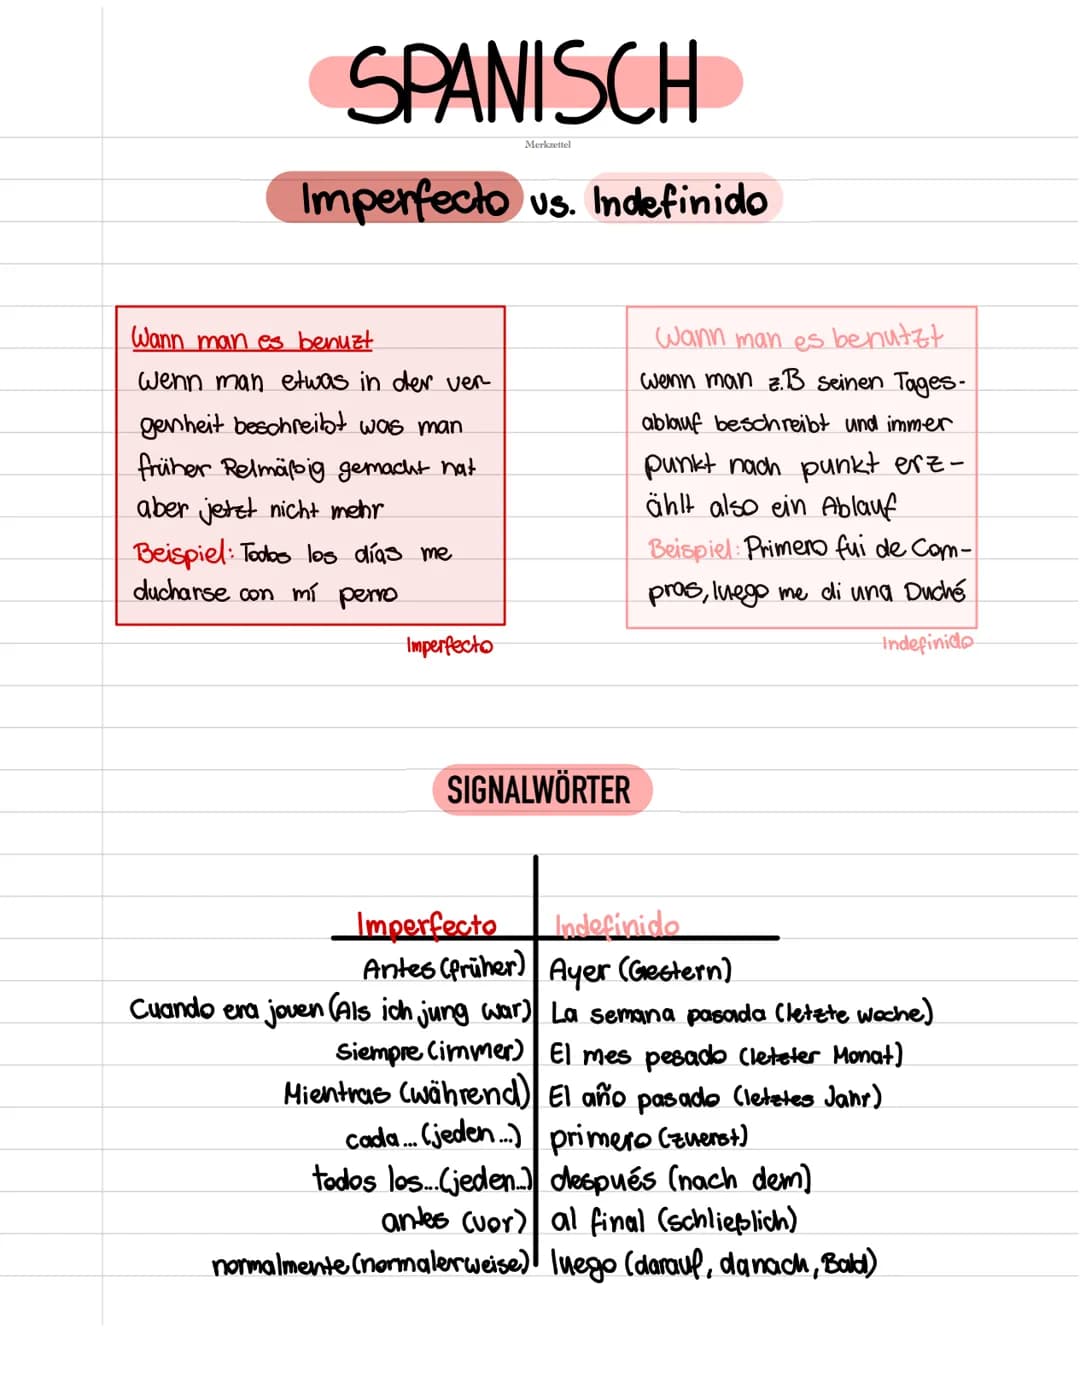 SPANISCH
Merkzettel
Imperfecto vs. Indefinido
Wann man es benuzt
Wenn man etwas in der ver-
genheit beschreibt was man
früher Relmäßig gemacht hat
aber jetzt nicht mehr
Beispiel: Todos los días me
ducharse con mí perro
Imperfecto
Wann man es benutzt
wenn man z.B seinen Tages-
ablauf beschreibt und immer
punkt nach punkt erz-
ählt also ein Ablauf
Beispiel: Primero fui de Com-
pras, luego me di una Duché
Indefinido
SIGNALWÖRTER
Imperfecto Indefinido
Antes (früher) Ayer (Gestern)
Cuando era joven (Als ich jung war) La semana pasada (letzte woche)
Siempre (immer) El mes pesado (letzter Monat)
Mientras (während) El año pasado (letztes Jahr)
cada... (jeden...) primero (zuerst)
todos los...(jeden...) después (nach dem)
antes (vor) al final (schließlich)
normalmente (normalerweise) luego (darauf, danach, Bald)